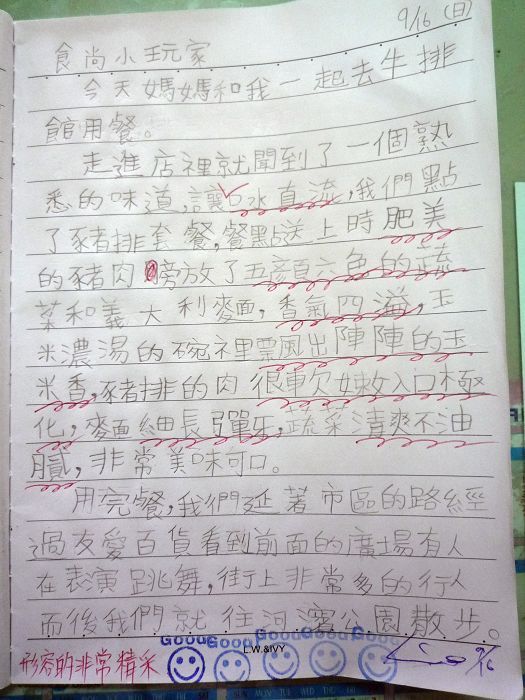 9/16 (日)
食尚小玩家
今天媽媽和我一起去牛排
館用餐。
走進店裡就聞到了一個熟
悉的味道,讓口水直流,我們點
了豬排套餐,餐點送上時肥美
的豬肉旁放了五顏六色的蔬
菜和義大利麥面,香氣四溢,玉
米濃湯的碗裡飄出陣陣的玉
米香,豬排的肉很軟嫩入口極
化,麥面細長彈牙,蔬菜清爽不油
膩,非常美味可口。
用完餐,我們延著市區的路經
過友愛百貨看到前面的廣場有人
在表演跳舞,街上非常多的行人
而後我們就往河濱公園散步。
Good Good Good Good Good Good
L.W.&IVY
形容的非常精采
9/16